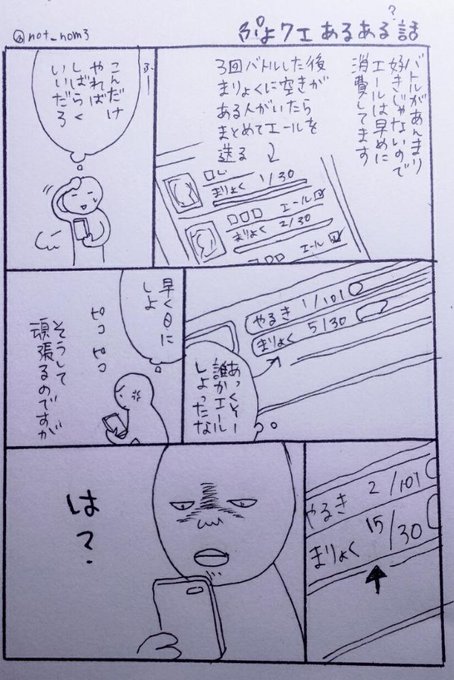 ぷよクエあるある話
?
@not_nom3
バトルがあんまり
好きじゃないので
エールは早めに
消費してます
3回バトルした後
まりょくに空きが
ある人がいたら
まとめてエールを
送る
まりょく 1/30
エール
まりょく 2/30
エール
ふー
こんだけ
やれば
しばらく
いいだろ
やるき 1/101
まりょく 5/30
あっくそー
誰かエール
しよったな
早く0に
しよ
ピコピコ
そうして
頑張るのですが
やるき 2/101
まりょく 15/30
は?